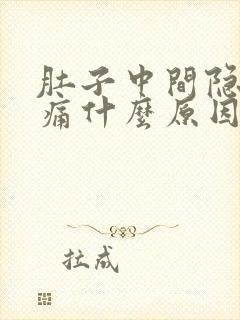 肚子中間隐
痛什麼原因
拉成